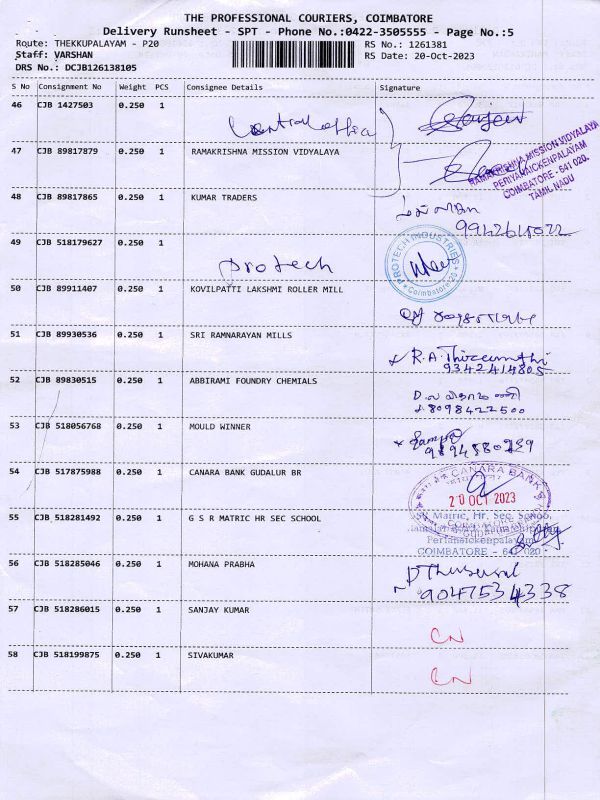 THE PROFESSIONAL COURIERS, COIMBATORE
Delivery Runsheet - SPT - Phone No.:0422-3505555 - Page No.:5
Route: THEKKUPALAYAM - P20 RS No.: 1261381
Staff: VARSHAN RS Date: 20-Oct-2023
DRS No.: DCJB126138105
S No Consignment No Weight PCS Consignee Details Signature
46 CJB 1427503 0.250 1
Central office
47 CJB 89817879 0.250 1 RAMAKRISHNA MISSION VIDYALAYA
RAMAKRISHNA MISSION VIDYALAYA
PERIYANAICKENPALAYAM
COIMBATORE - 641 020.
TAMIL NADU
48 CJB 89817865 0.250 1 KUMAR TRADERS
9942615022
49 CJB 518179627 0.250 1
Protech
PROTECH INDUSTRIES
Coimbatore-20
50 CJB 89911407 0.250 1 KOVILPATTI LAKSHMI ROLLER MILL
51 CJB 89930536 0.250 1 SRI RAMNARAYAN MILLS
R.A.
9342414805
52 CJB 89830515 0.250 1 ABBIRAMI FOUNDRY CHEMIALS
8098422500
53 CJB 518056768 0.250 1 MOULD WINNER
54 CJB 517875988 0.250 1 CANARA BANK GUDALUR BR
CANARA BANK
20 OCT 2023
55 CJB 518281492 0.250 1 G S R MATRIC HR SEC SCHOOL
Matric. Hr. Sec. School,
Perianaickenpalayam
COIMBATORE - 641 020
56 CJB 518285046 0.250 1 MOHANA PRABHA
9047534338
57 CJB 518286015 0.250 1 SANJAY KUMAR
CN
58 CJB 518199875 0.250 1 SIVAKUMAR
CN